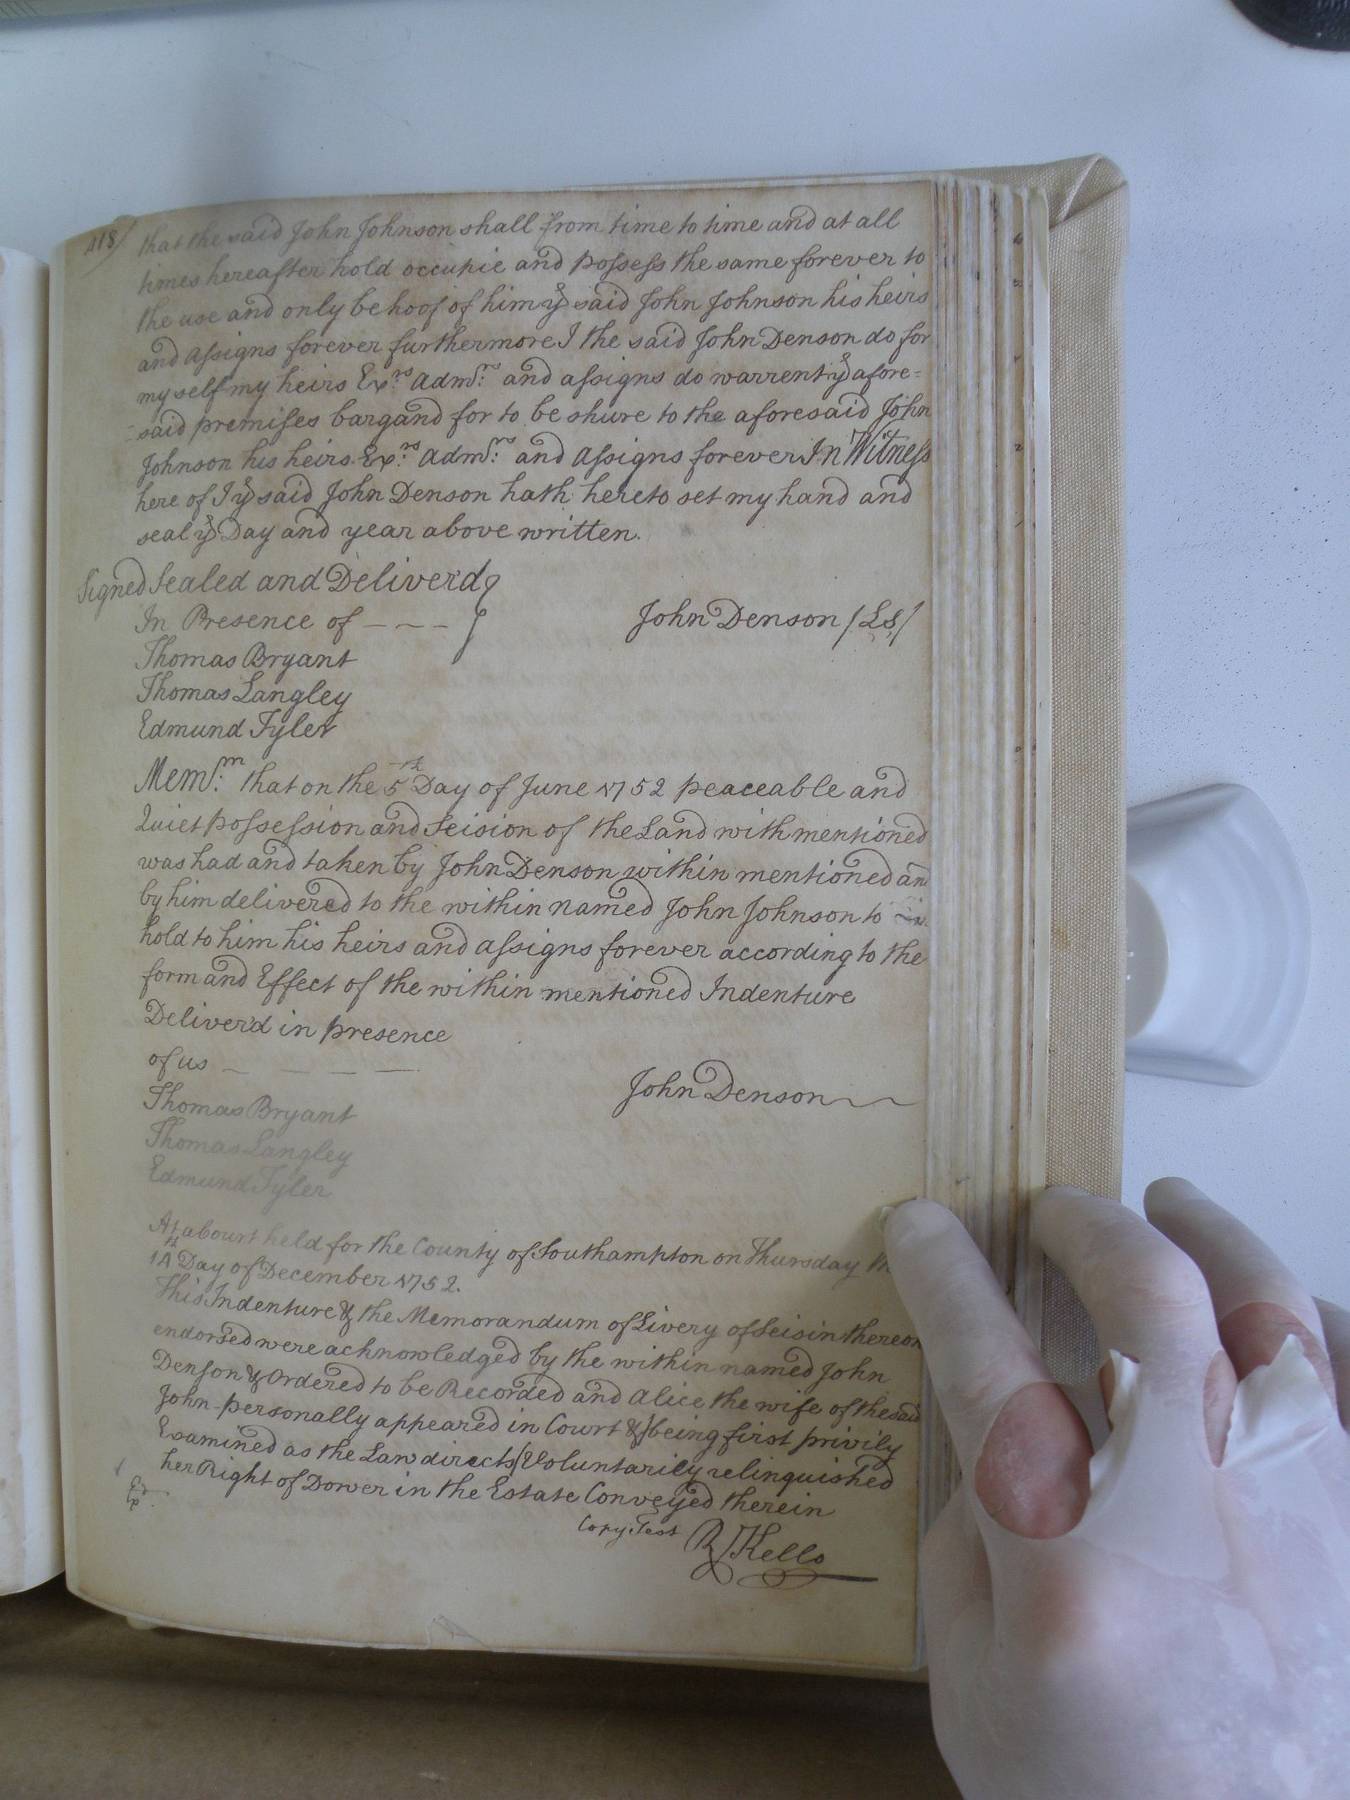 418/
that the said John Johnson shall from time to time and at all
times hereafter hold occupie and possess the same forever to
the use and only behoof of him yͤ said John Johnson his heirs
and assigns forever furthermore I the said John Denson do for
my self my heirs Exʳˢ admʳˢ and assigns do warrent yͤ afore=
said premises bargand for to be shure to the aforesaid John
Johnson his heirs Exʳˢ admʳˢ and assigns forever In Witness
here of I yͤ said John Denson hath hereto set my hand and
seal yͤ Day and year above written.
Signed Sealed and Deliverd
In Presence of John Denson /LS/
Thomas Bryant
Thomas Langley
Edmund Tyler
Memᵐ that on the 5ᵗʰ Day of June 1752 peaceable and
Quiet possession and Seision of the Land with mentioned
was had and taken by John Denson within mentioned an
by him delivered to the within named John Johnson to
hold to him his heirs and assigns forever according to the
form and Effect of the within mentioned Indenture
Deliver'd in presence
of us John Denson
Thomas Bryant
Thomas Langley
Edmund Tyler
At a Court held for the County of Southampton on Thursday
14ᵗʰ Day of December 1752.
This Indenture & the Memorandum of Livery of Seisin thereon
endorsed were acknowledged by the within named John
Denson & Ordered to be Recorded and Alice the wife of the said
John personally appeared in Court & (being first privily
Examined as the Law directs) Voluntarily relinquished
her Right of Dower in the Estate Conveyed therein
Exᵈ
Copy. Test R Kello